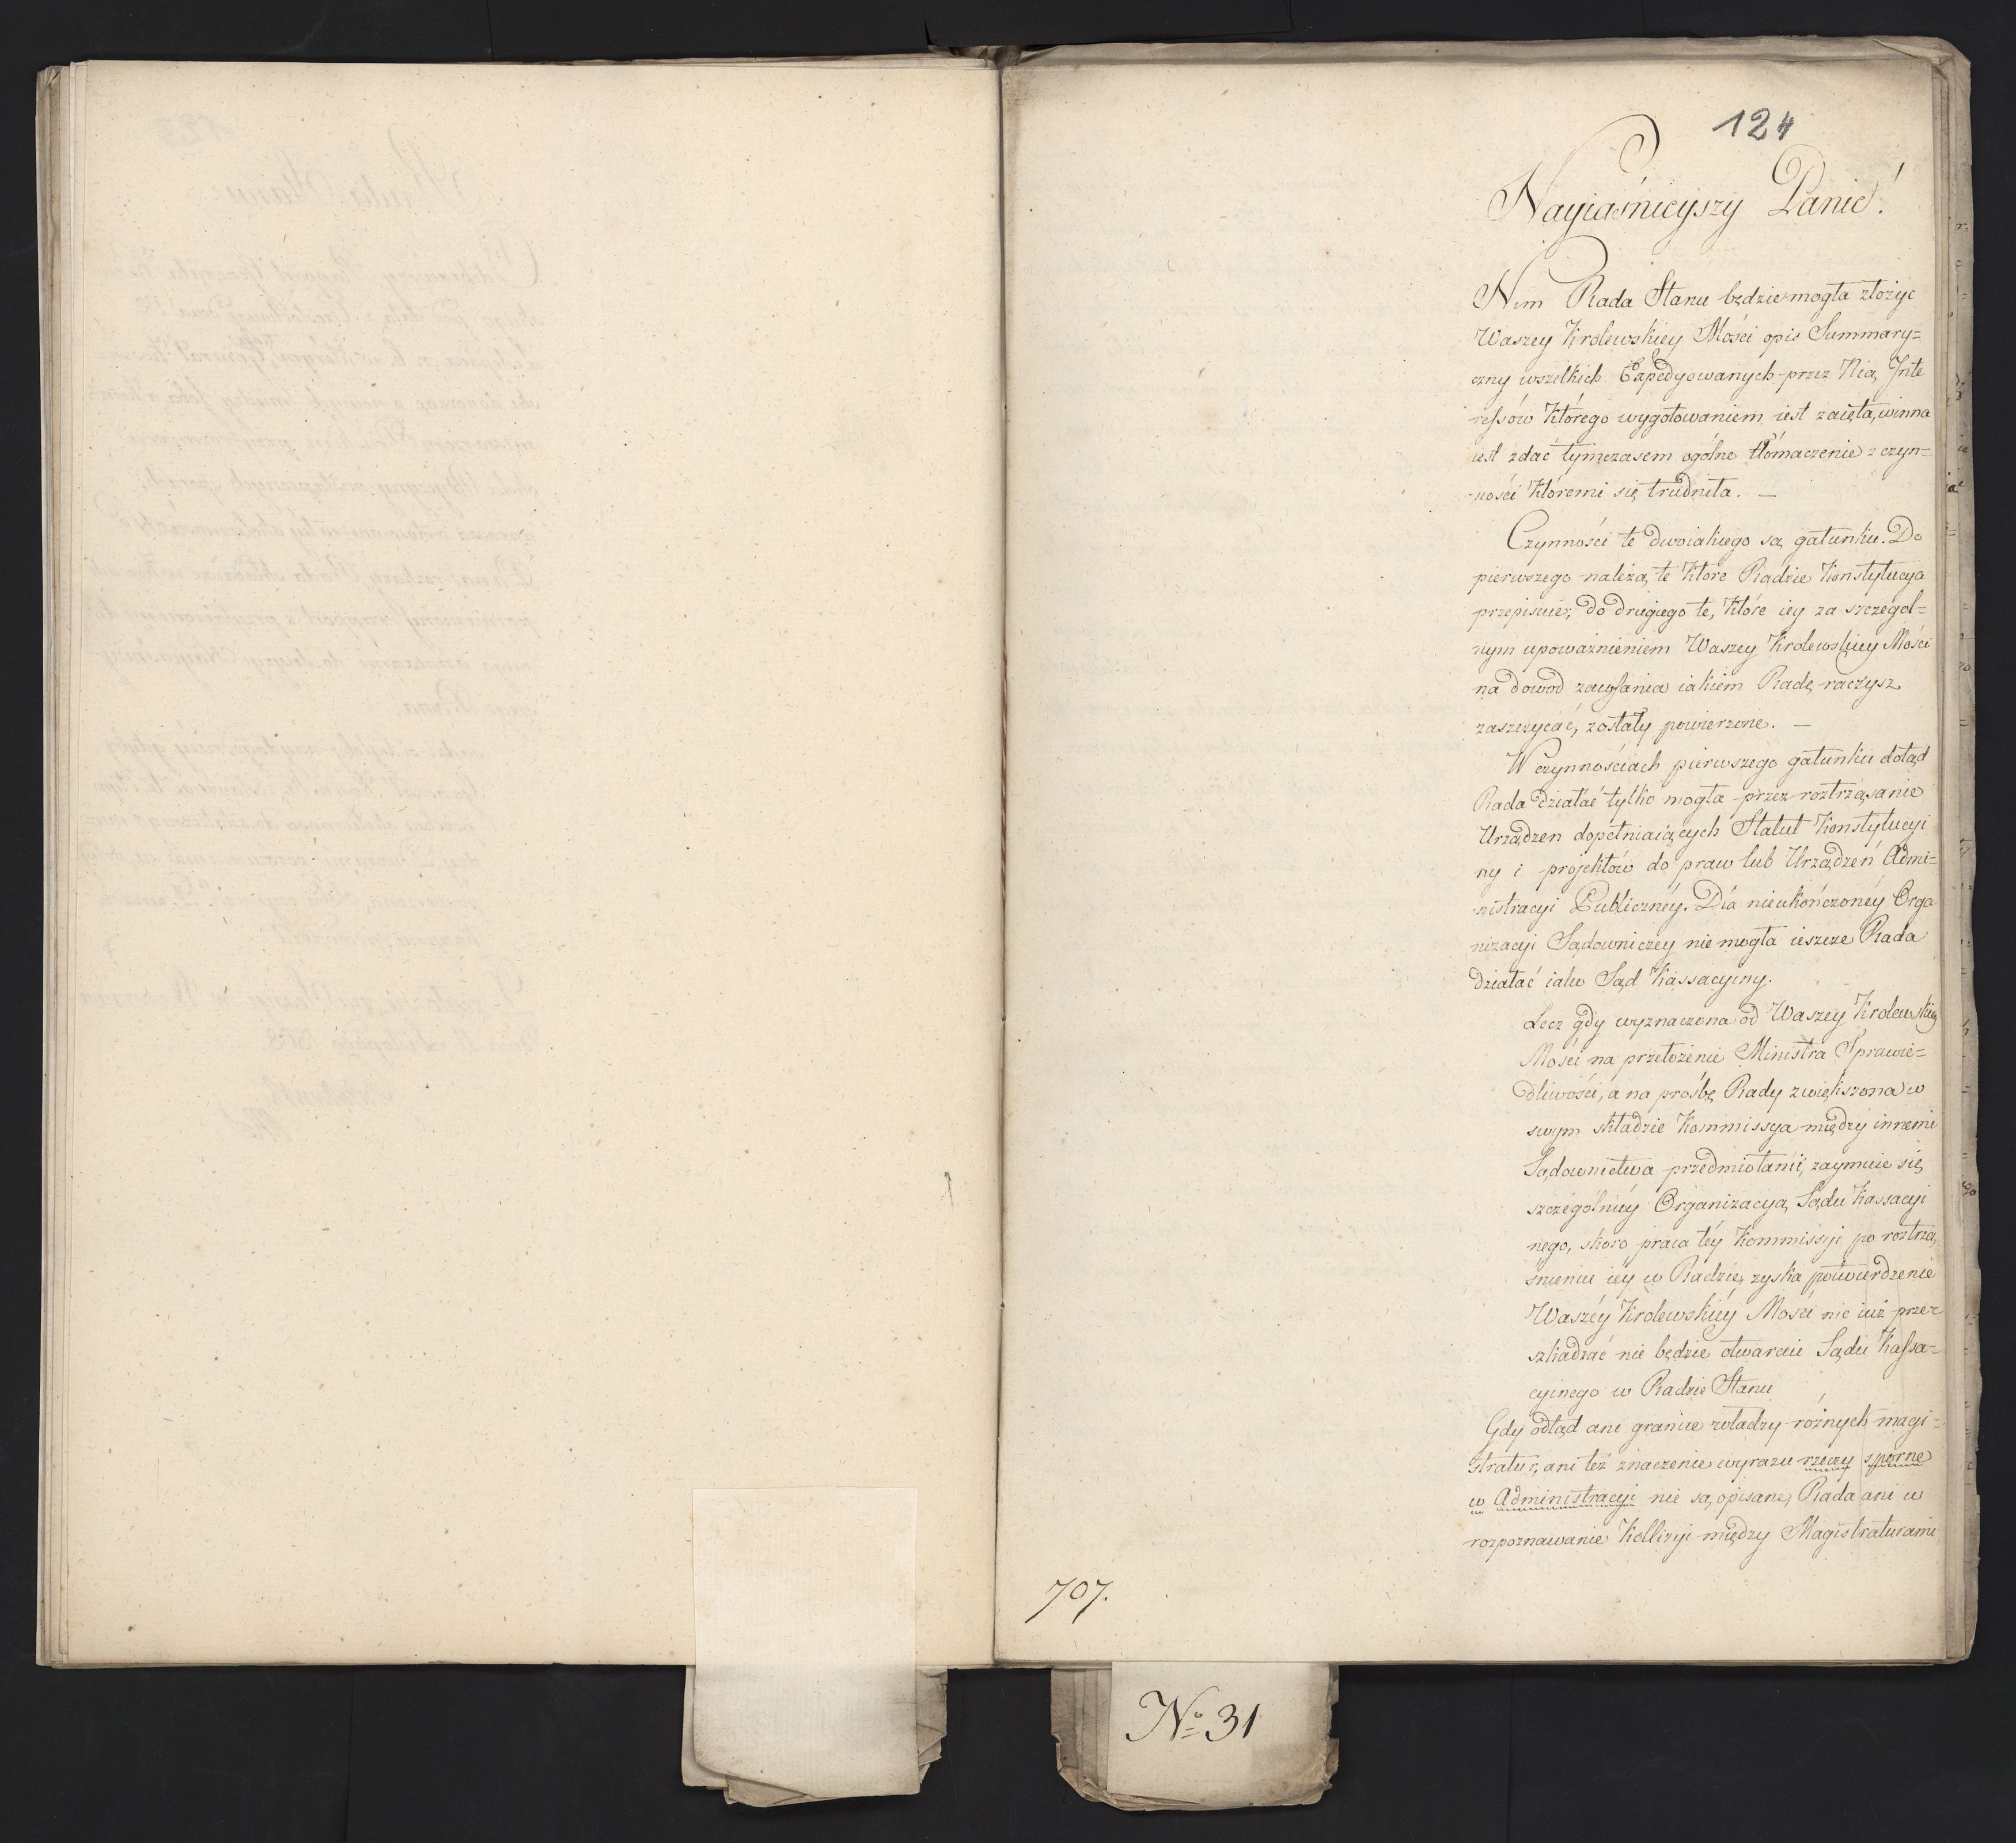 124
Nayiaśnieyszy Panie!
Nim Rada Stanu będzie mogła złożyc
Waszey Krolewskiey Mości opis Summary=
czny wszelkich Expedyowanych przez Nią Inte
ressów którego wygotowaniem iest zaięta, winna
iest zdać tymczasem ogólne tłómaczenie z czyn=
ności któremi się trudniła. —
Czynności te dwoiakiego są gatunku. Do
pierwszego należą te ktore Radzie Konstytucya
przepisuie, do drugiego te, które iey za szczegol=
nym upoważnieniem Waszey Krolewskiey Mości
na dowod zaufania iakiem Radę raczysz
zaszczycać, zostały powierzone. —
W czynnościach pierwszego gatunku dotąd
Rada działać tylko mogła przez roztrząsanie
Urządzen dopełniaiących Statut Konstytucyi
ny i projektów do praw lub Urządzeń Admi=
nistracyi Publiczney. Dla nieukończoney Orga
nizacyi Sądowniczey nie mogła ieszcze Rada
działać iako Sąd Kassacyiny.
Lecz gdy wyznaczona od Waszey Krolewskiey
Mości na przełożenie Ministra Sprawie=
dliwości, a na prośbę Rady zwiększona w
swym składzie Kommissya między innemi
Sądownictwa przedmiotami, zaymuie się
szczególniey Organizacyą Sądu Kassacyi
nego, skoro praca téy Kommissyi po roztrzą
śnieniu iéy w Radzie, zyska potwierdzenie
Waszéy Krolewskiéy Mości nic iuż prze
szkadzać nie będzie otwarciu Sądu Kassa=
cyinego w Radzie Stanu
Gdy odtąd ani granice władzy różnych magi=
stratur, ani też znaczenie wyrazu rzeczy sporne
w Administracyi nie są opisane, Rada ani w
rozpoznawanie Kollizyi między Magistraturami
707.
No 31